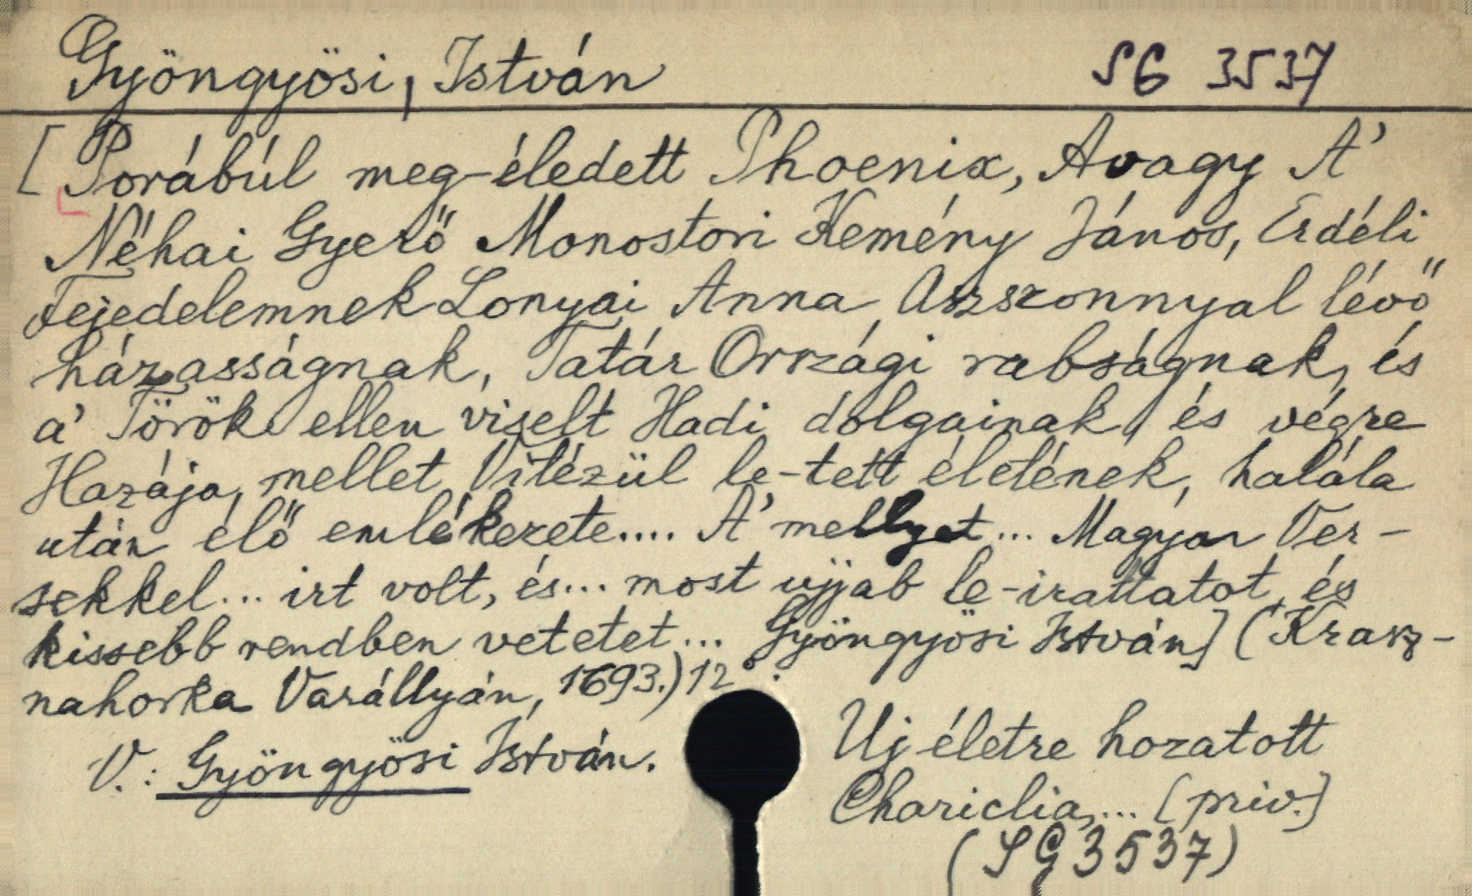 Gyöngyösi, István SG 3537
[Porábúl meg-éledett Phoenix, Avagy A'
Néhai Gyerő Monostori Kemény János, Erdéli
Fejedelemnek Lonyai Anna Aszszonnyal lévő
házasságnak, Tatár Országi rabságnak, és
a' Török ellen viselt Hadi dolgainak, és végre
Hazája, mellet Vitézül le-tett életének, halála
után elő emlékezete.... A' mellyet... Magyar Ver-
sekkel... irt volt, és... most ujjab le-irattatot, és
kissebb rendben vetetet... Gyöngyösi István] (Krasz-
nahorka Varállyán, 1693.) 12°.
V.: Gyöngyösi István.
Uj életre hozatott
Chariclia,... [priv.]
(SG 3537)